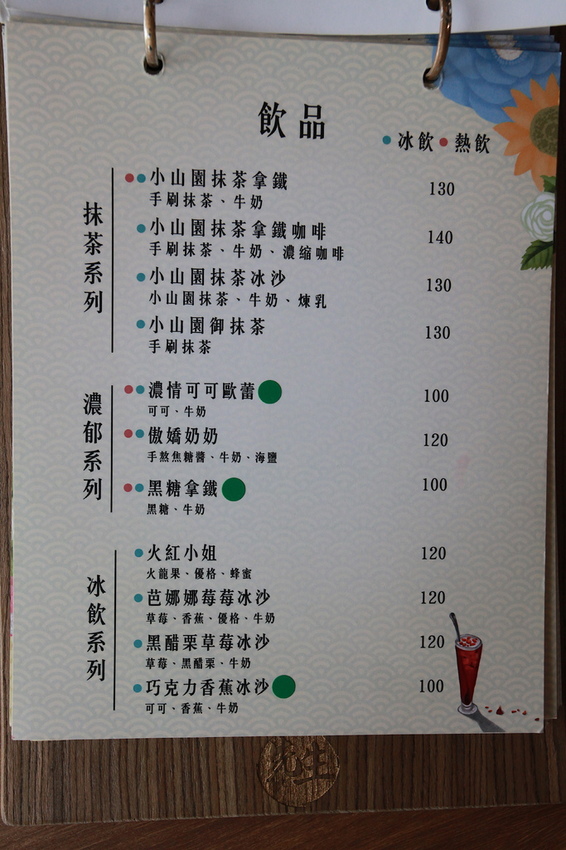 飲品
冰飲 熱飲
抹茶系列
小山園抹茶拿鐵 130
手刷抹茶、牛奶
小山園抹茶拿鐵咖啡 140
手刷抹茶、牛奶、濃縮咖啡
小山園抹茶冰沙 130
小山園抹茶、牛奶、煉乳
小山園御抹茶 130
手刷抹茶
濃郁系列
濃情可可歐蕾 100
可可、牛奶
傲嬌奶奶 120
手熬焦糖醬、牛奶、海鹽
黑糖拿鐵 100
黑糖、牛奶
冰飲系列
火紅小姐 120
火龍果、優格、蜂蜜
芭娜娜莓莓冰沙 120
草莓、香蕉、優格、牛奶
黑醋栗草莓冰沙 120
草莓、黑醋栗、牛奶
巧克力香蕉冰沙 100
可可、香蕉、牛奶